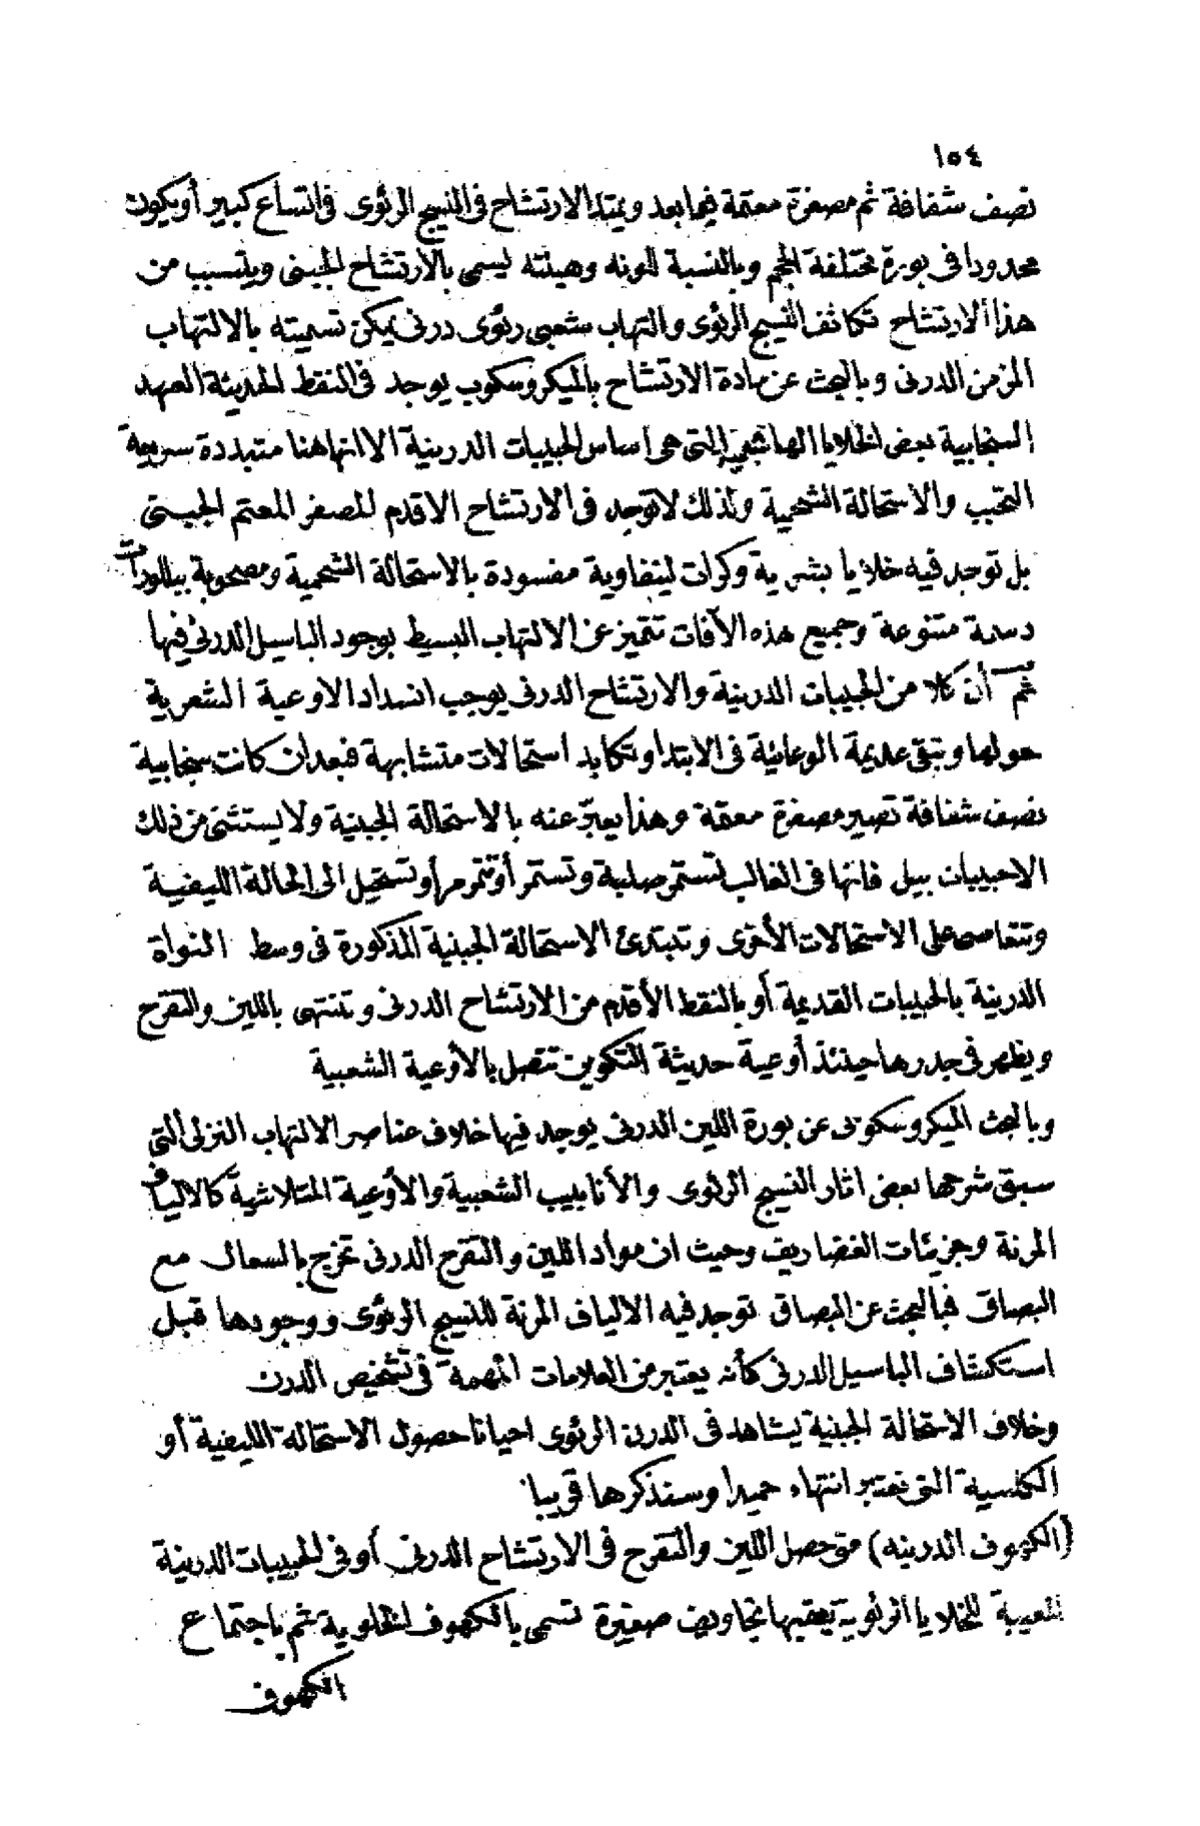 ١٥٤
نصف شفافة ثم مصفرة معتمة فيما بعد ويمتد الارتشاح فى النسيج الرئوى فى اتساع كبير أو يكون
محدودا فى بورة مختلفة الحجم وبالنسبة للونه وهيئته يسمى بالارتشاح الجبنى ويتسبب من
هذا الارتشاح تكاثف النسيج الرئوى والتهاب شعبى رئوى درنى يمكن تسميته بالالتهاب
المزمن الدرنى وبالبحث عن مادة الارتشاح بالميكروسكوب يوجد فى النقط الحديثة العهد
السنجابية بعض الخلايا التى هى اساس الحبيبات الدرنية الا انها هنا متبددة سريعة
التحبب والاستحالة الشحمية ولذلك لا توجد فى الارتشاح الاقدم المصفر المعتم الجبنى
بل توجد فيه خلايا بشرية وكرات لينفاوية مفسودة بالاستحالة الشحمية ومصحوبة ببللورات
دسمة متنوعة وجميع هذه الآفات تتميز عن الالتهاب البسيط بوجود الباسيل الدرنى فيها
ثم أن كلا من الحبيبات الدرنية والارتشاح الدرنى يوجب انسداد الاوعية الشعرية
حولها وتبقى عديمة الوعائية فى الابتدا وتكابد استحالات متشابهة فبعد ان كانت سنجابية
نصف شفافة تصير مصفرة معتمة وهذا يعبر عنه بالاستحالة الجبنية ولا يستثنى من ذلك
الاحبيبات بيل فانها فى الغالب تستمر صلبة وتستمر أو تتحيل الى الحالة الليفية
وتتعاصى على الاستحالات الأخرى وتبتدئ الاستحالة الجبنية المذكورة فى وسط النواة
الدرنية بالحبيبات القديمة أو بالنقط الأقدم من الارتشاح الدرنى وتنتهى باللين والتقرح
ويظهر فى جدرها حينئذ أوعية حديثة التكوين تتصل بالأوعية الشعبية
وبالبحث الميكروسكوبى عن بورة اللين الدرنى يوجد فيها خلاف عناصر الالتهاب النزلى التى
سبق شرحها بعض اثار النسيج الرئوى والأنابيب الشعبية والأوعية المتلاشية كالالياف
المرنة وجزيئات الغضاريف وحيث ان مواد اللين والتقرح الدرنى تخرج بالسعال مع
البصاق فبالبحث عن البصاق توجد فيه الالياف المرنة للنسيج الرئوى ووجودها قبل
استكشاف الباسيل الدرنى كأنه يعتبر من العلامات المهمة فى تشخيص الدرن
وخلاف الاستحالة الجبنية يشاهد فى الدرن الرئوى احيانا حصول الاستحالة الليفية أو
الكلسية التى تعتبر انتهاء حميدا وسنذكرها قريبا
(الكهوف الدرنيه) متى حصل اللين والتقرح فى الارتشاح الدرنى أو فى الحبيبات الدرنية
للخلايا الرئوية يعقبها تجاويف صغيرة تسمى بالكهوف الخلوية ثم باجتماع
الكهوف